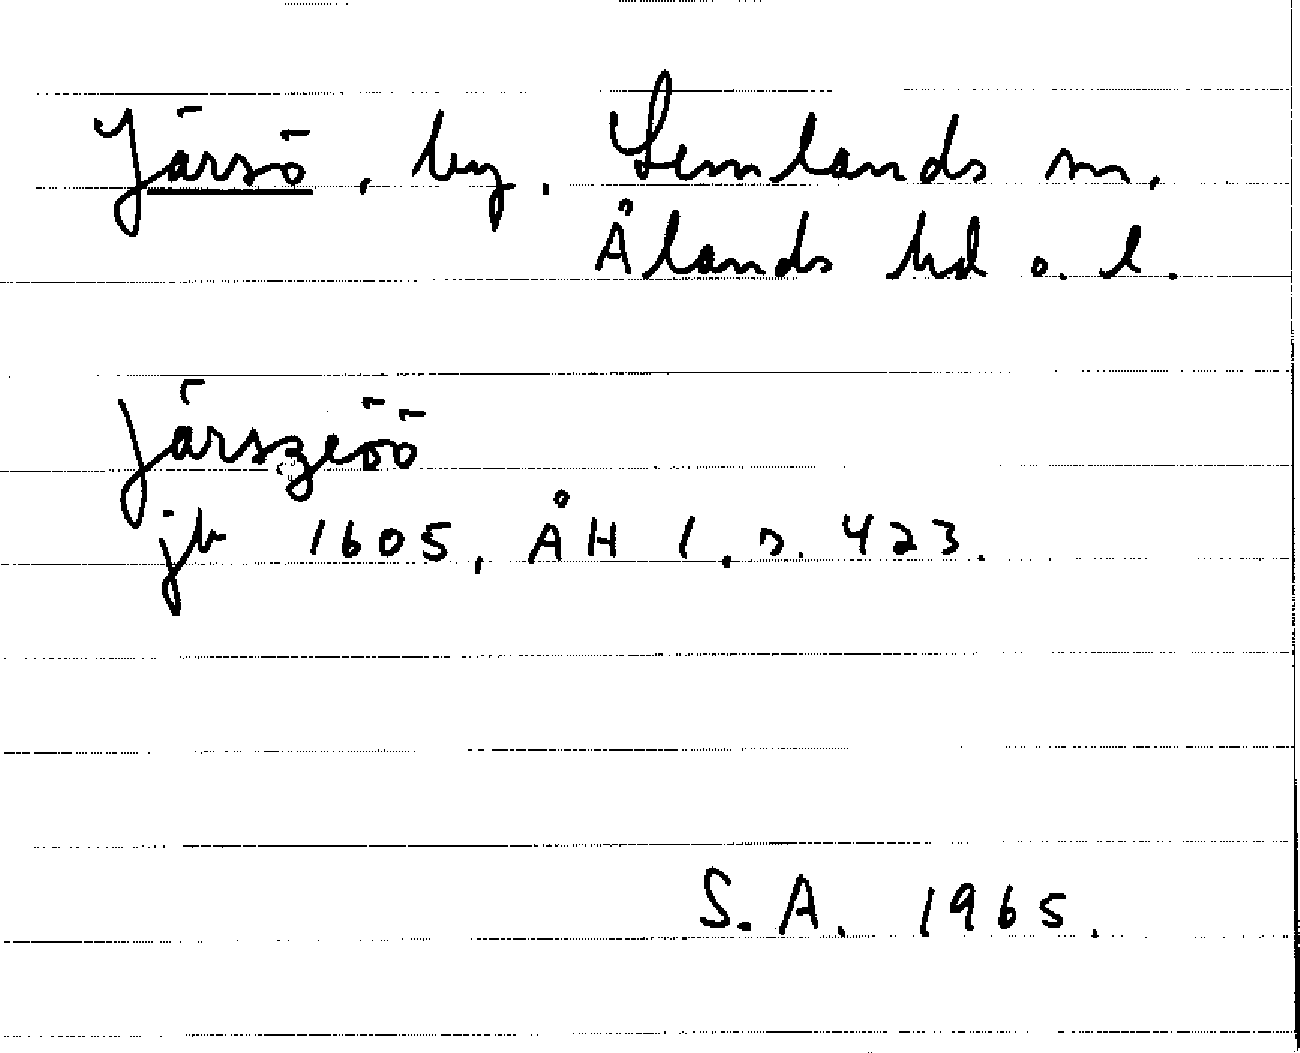 Järsö, by. Lemlands sn.
Ålands hd o. l.
Järszeöö
jb 1605, ÅH 1, s. 423.
S. A. 1965.